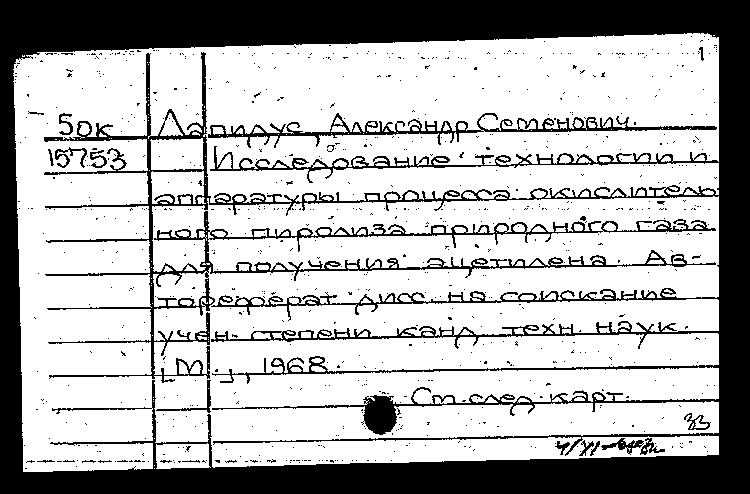 1
5ок Лапидус, Александр Семенович.
15753 Исследование технологии и
аппаратуры процесса окислитель-
ного пиролиза природного газа
для получения ацетилена. Ав-
тореферат дисс. на соискание
учен. степени канд. техн. наук.
[М.], 1968.
См. след. карт.
33